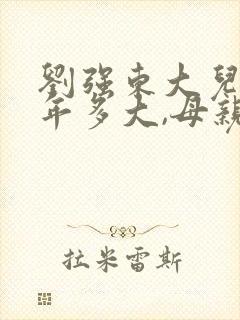 劉强東大兒
年多大,母親
拉米雷斯